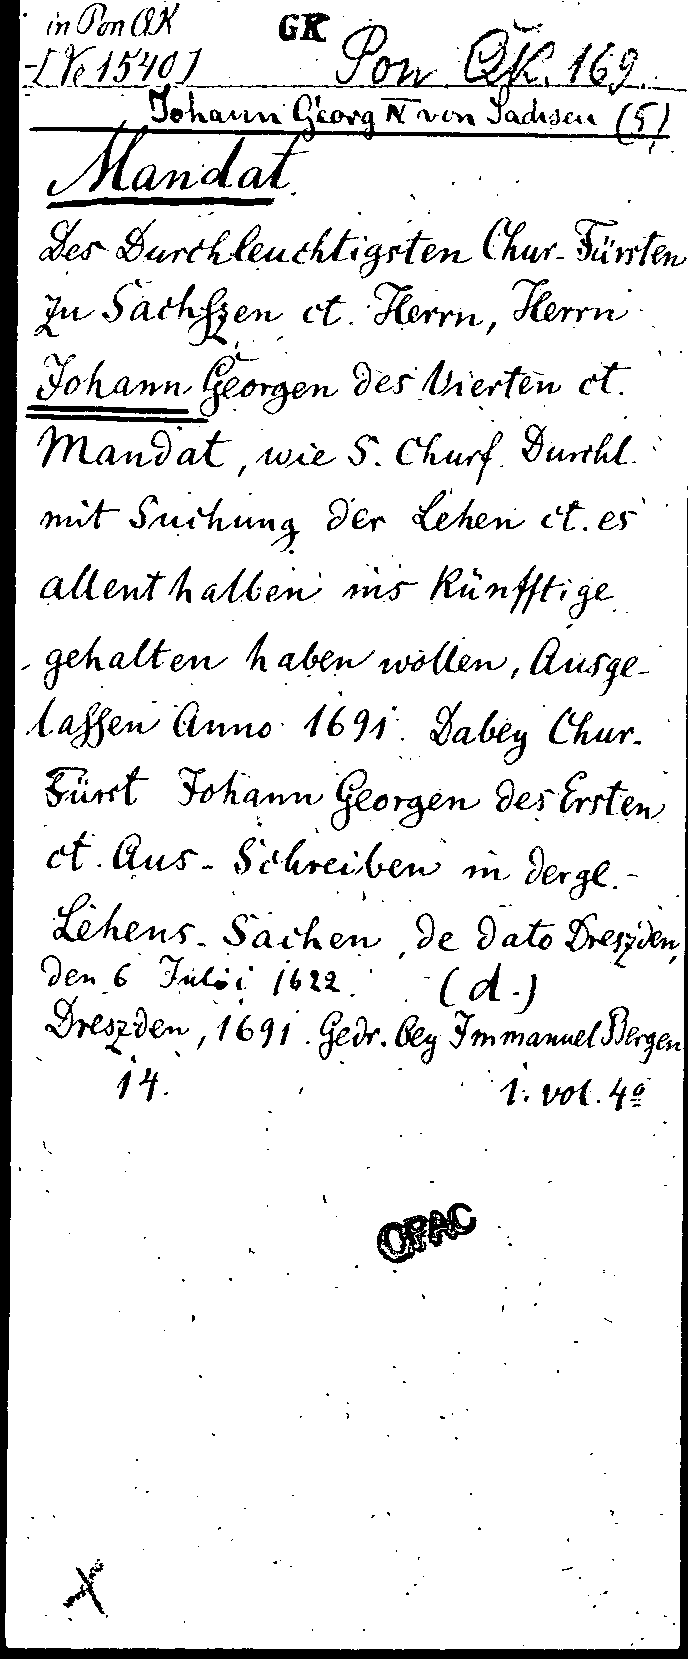 in Pon QK
[Ve 1540]
GK
Pon QK. 169.
Johann Georg IV von Sachsen (5)
Mandat.
Des Durchleuchtigsten Chur-Fürsten
zu Sachßen ct. Herrn, Herrn
Johann Georgen des Vierten ct.
Mandat, wie S. Churf. Durchl.
mit Suchung der Lehen ct. es
allenthalben ins Künfftige
gehalten haben wollen, Ausge-
lassen Anno 1691. Dabey Chur-
Fürst Johann Georgen des Ersten
ct. Aus-Schreiben in dergl.-
Lehens-Sachen, de dato Dreszden,
den 6 Julii 1622. (d.)
Dreszden, 1691. Gedr. bey Immanuel Bergen
14. 1. vol. 4º
OPAC
X